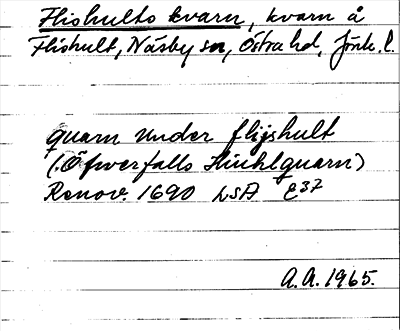 Flishults kvarn, kvarn å
Flishult, Näsby sn, Östra hd, Jönk. l.
quarn under flijshult
(Öfwerfalls Hiuhlquarn)
Renov. 1690 LSA E37
A.A. 1965.